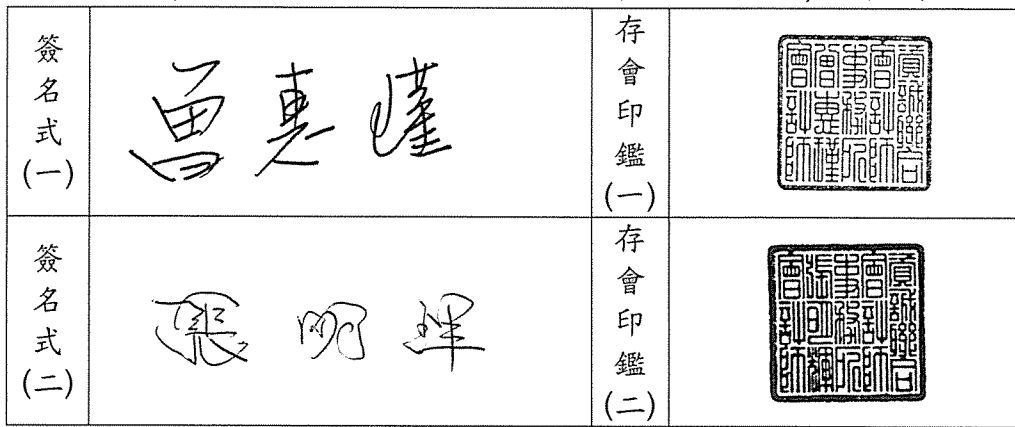 簽名式(一)
曾惠瑾
存會印鑑(一)
資誠聯合
會計師
事務所
曾惠瑾
會計師
簽名式(二)
張明輝
存會印鑑(二)
資誠聯合
會計師
事務所
張明輝
會計師